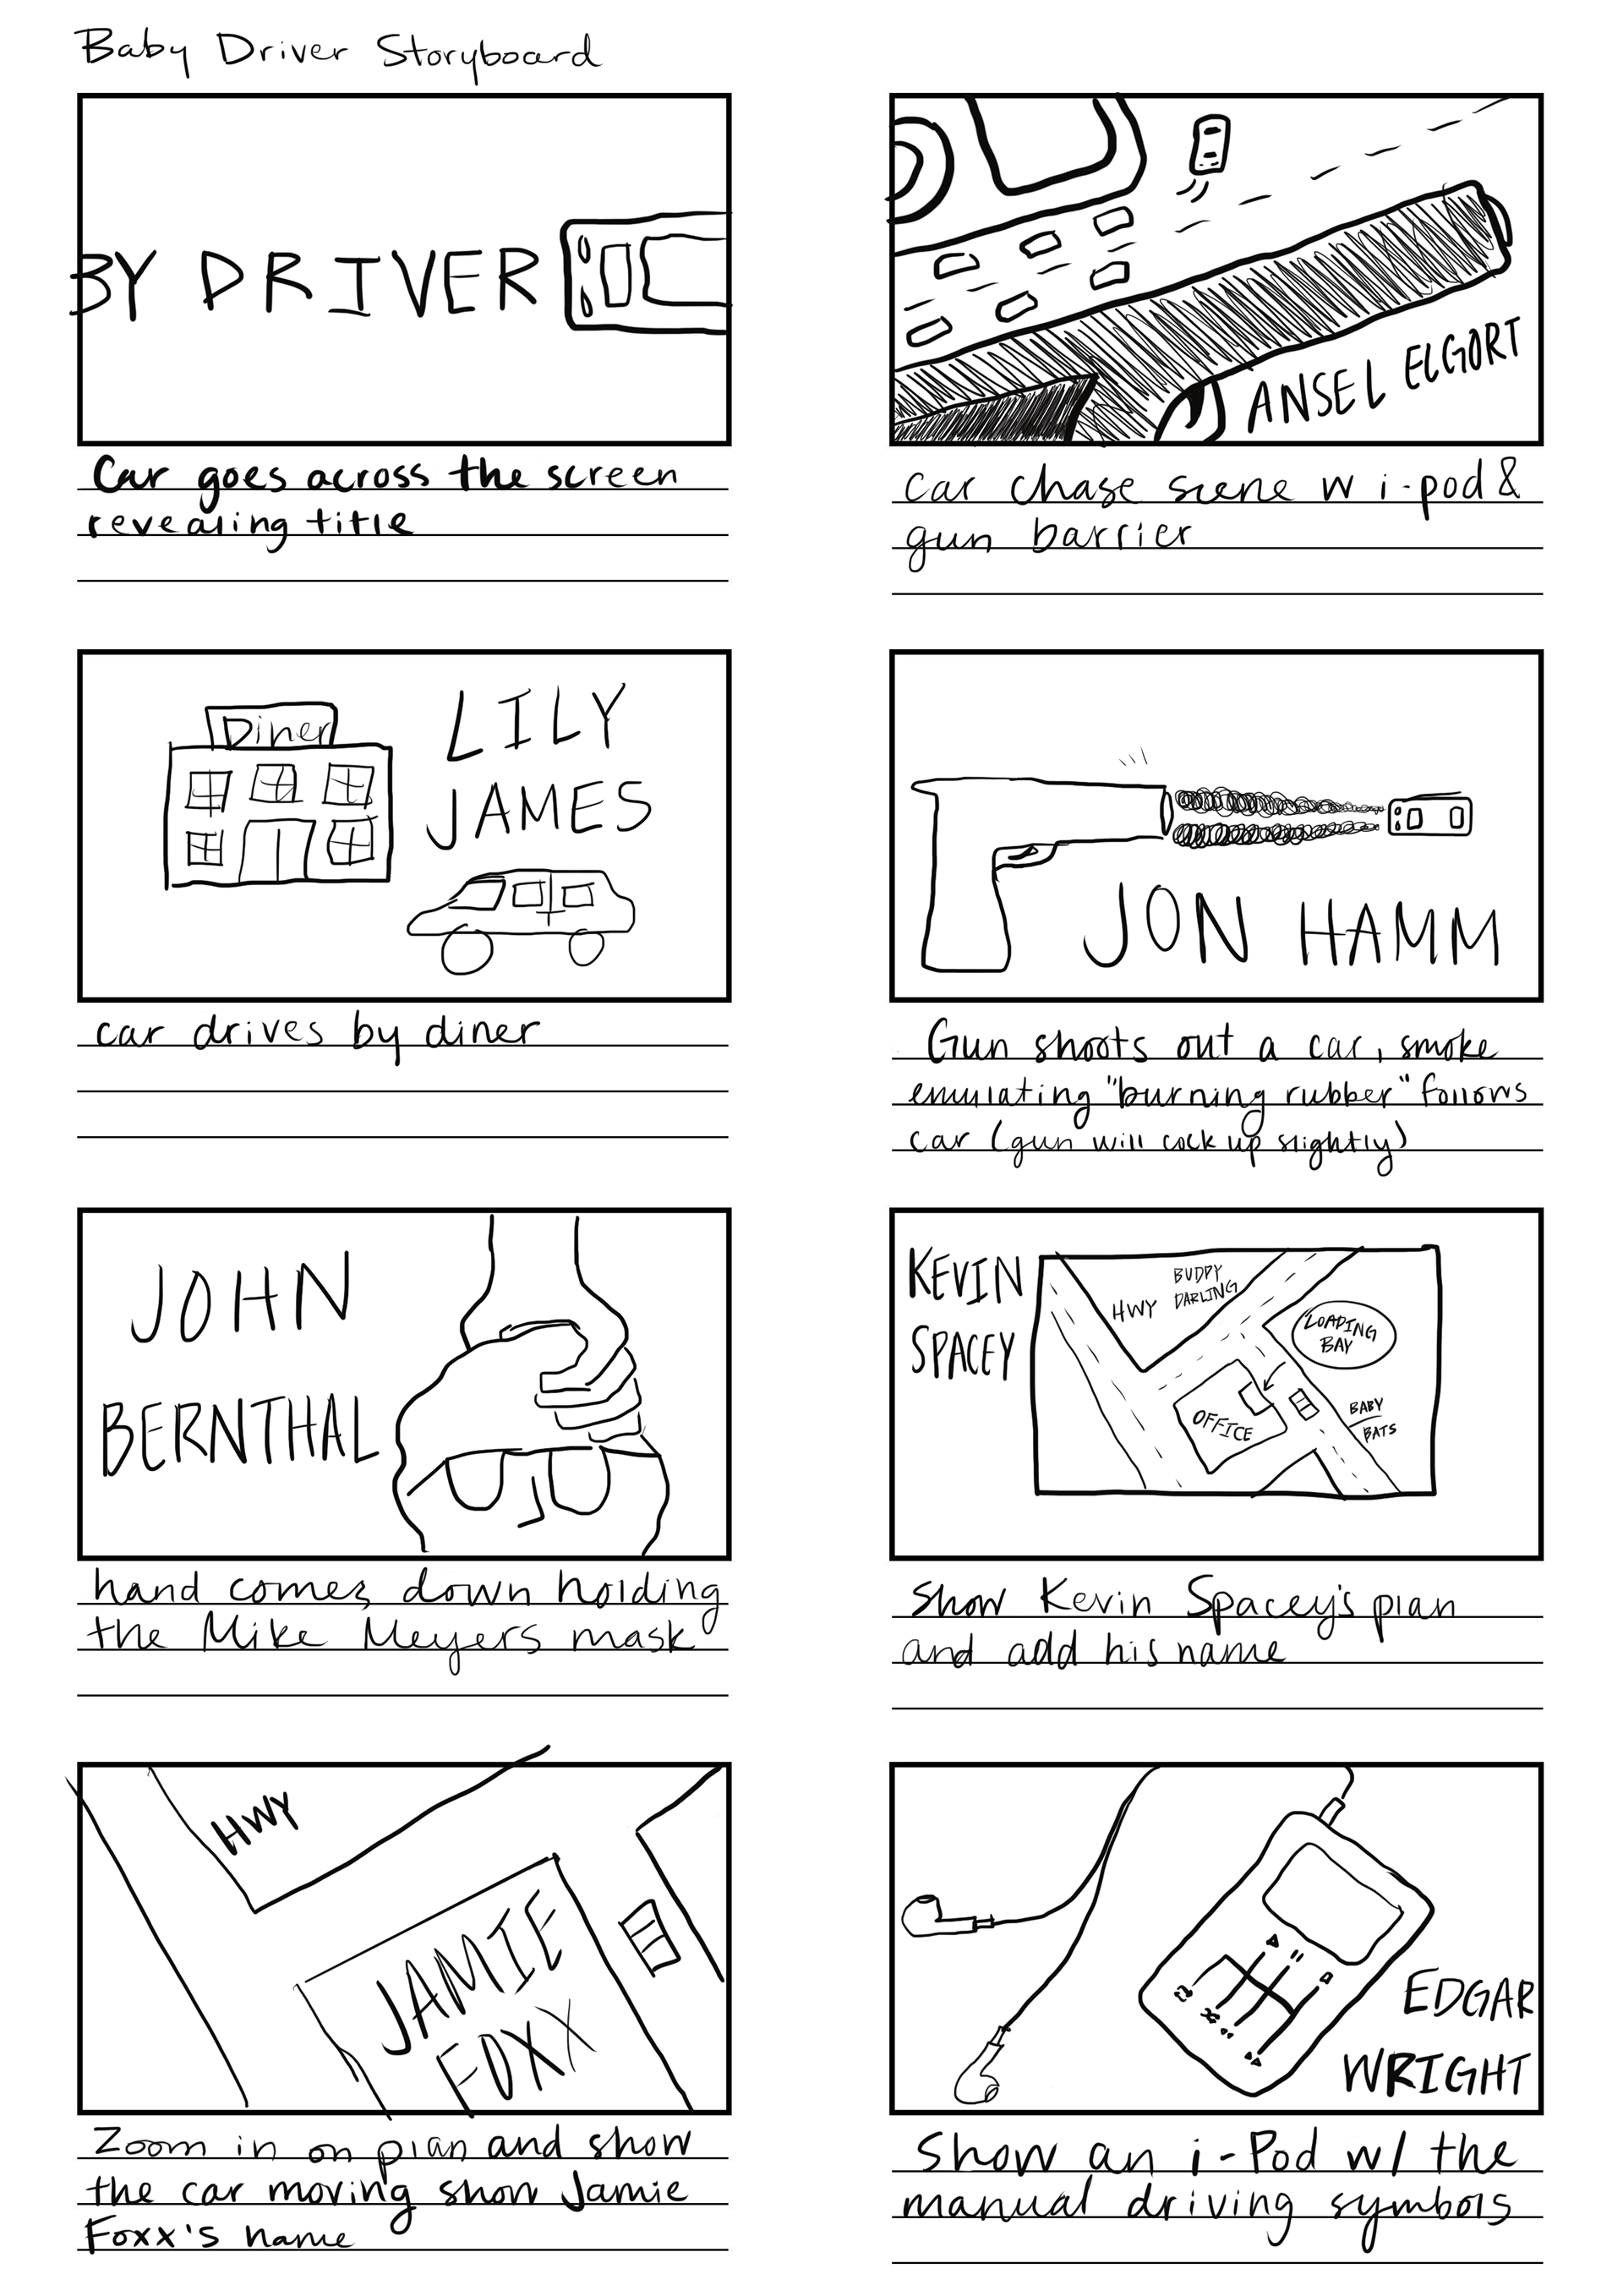 Baby Driver Storyboard
BY DRIVER
Car goes across the screen
revealing title
ANSEL ELGORT
car chase scene w i-pod &
gun barrier
Diner
LILY
JAMES
car drives by diner
JON HAMM
Gun shoots out a car, smoke
emulating "burning rubber" follows
car (gun will cock up slightly)
JOHN
BERNTHAL
hand comes down holding
the Mike Meyers mask
KEVIN
SPACEY
HWY
BUDDY
DARLING
LOADING
BAY
OFFICE
BABY
BATS
show Kevin Spacey's plan
and add his name
HWY
JAMIE
FOXX
Zoom in on plan and show
the car moving show Jamie
Foxx's name
EDGAR
WRIGHT
Show an i-Pod w/ the
manual driving symbols